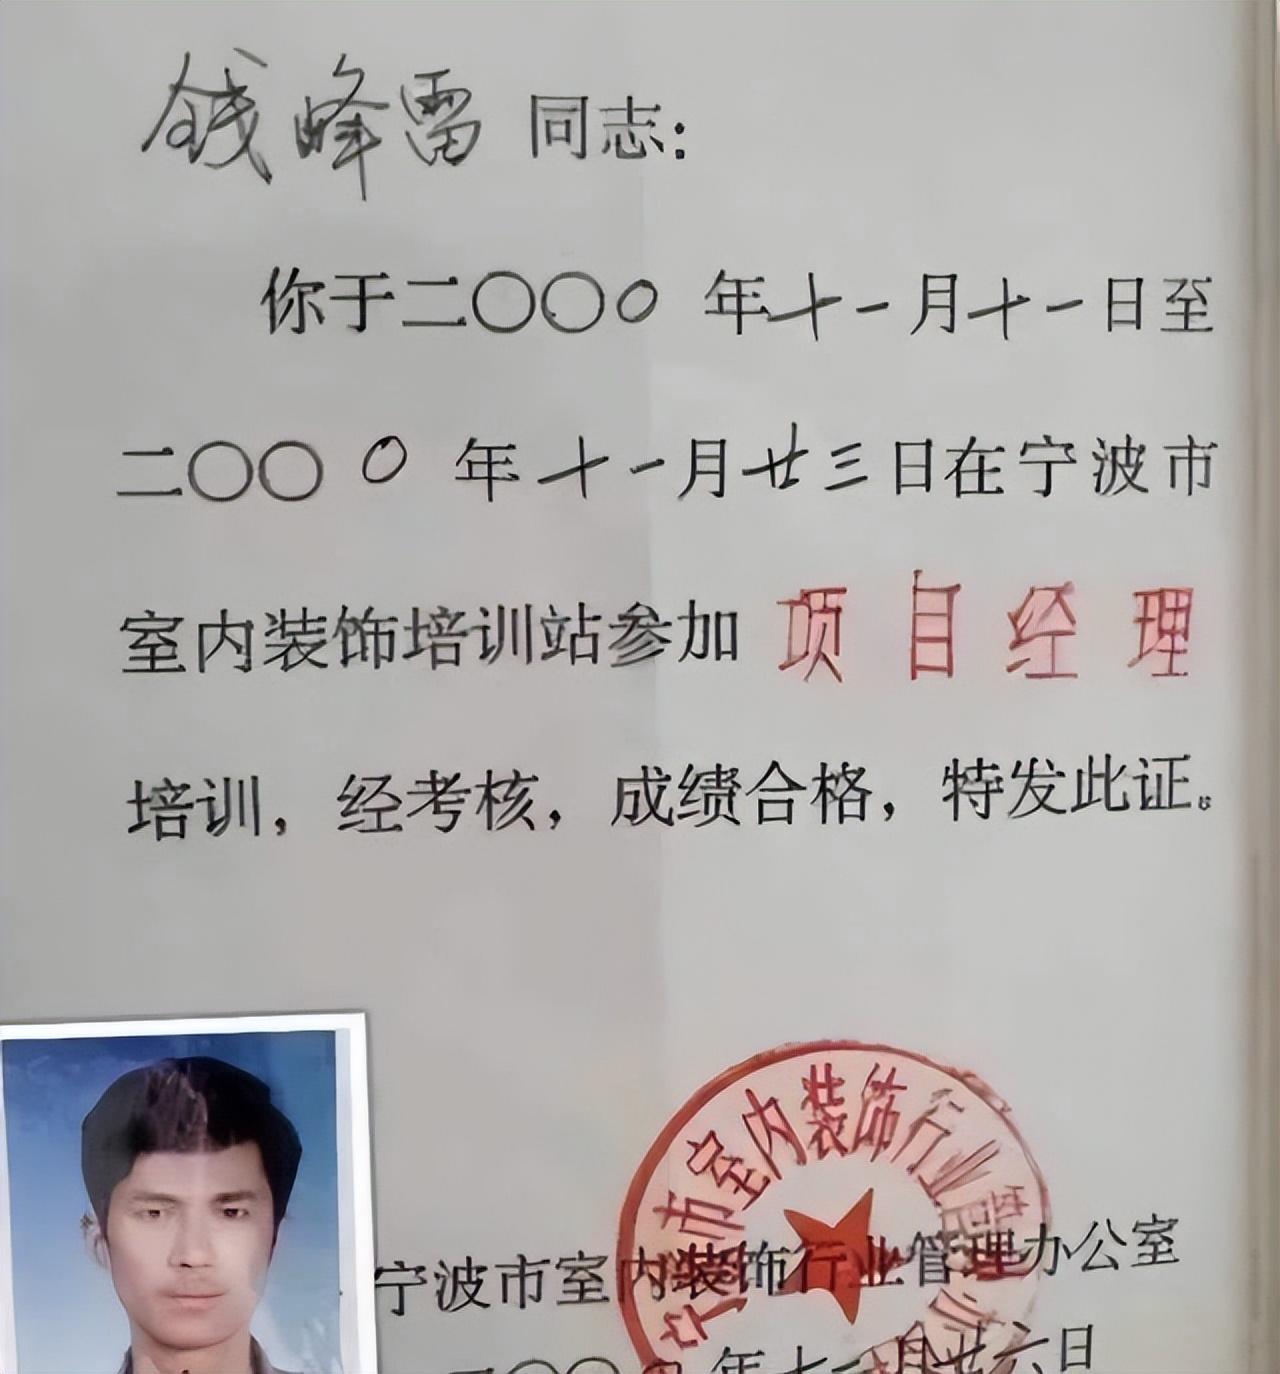 钱峰雷同志：
你于二〇〇〇年十一月十一日至
二〇〇〇年十一月廿三日在宁波市
室内装饰培训站参加项目经理
培训，经考核，成绩合格，特发此证。
宁波市室内装饰行业管理办公室
宁波市室内装饰行业管理办公室
二〇〇〇年十一月廿六日